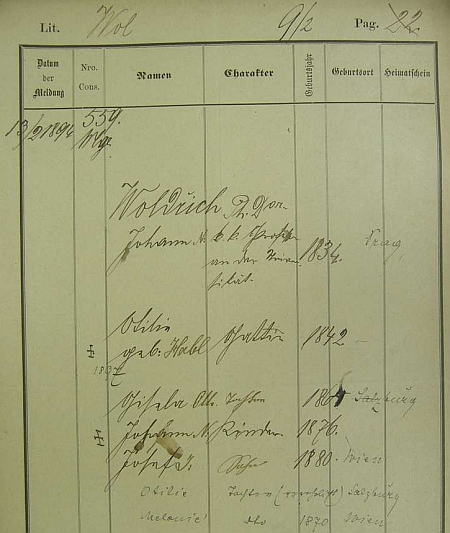 Lit. Wol 9/2 Pag. 22.
Datum der Meldung Nro. Cons. Namen Charakter Geburtsjahr Geburtsort Heimatschein
13/2 1894 559.
Woldřich Dor
Johann N. k. k. 1834. Prag
an der Univer
sität.
Otilie
geb. Habl Gattin 1842 –
Gisela Tochter 186 Salzburg
Johann N. Kinder 1876.
Josef Sohn 1880. Wien
Otilie Tochter Salzburg
Melanie dto 1870 Wien